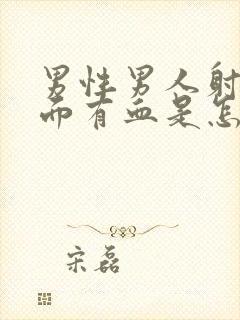 男性男人射
而有血是怎
宋磊